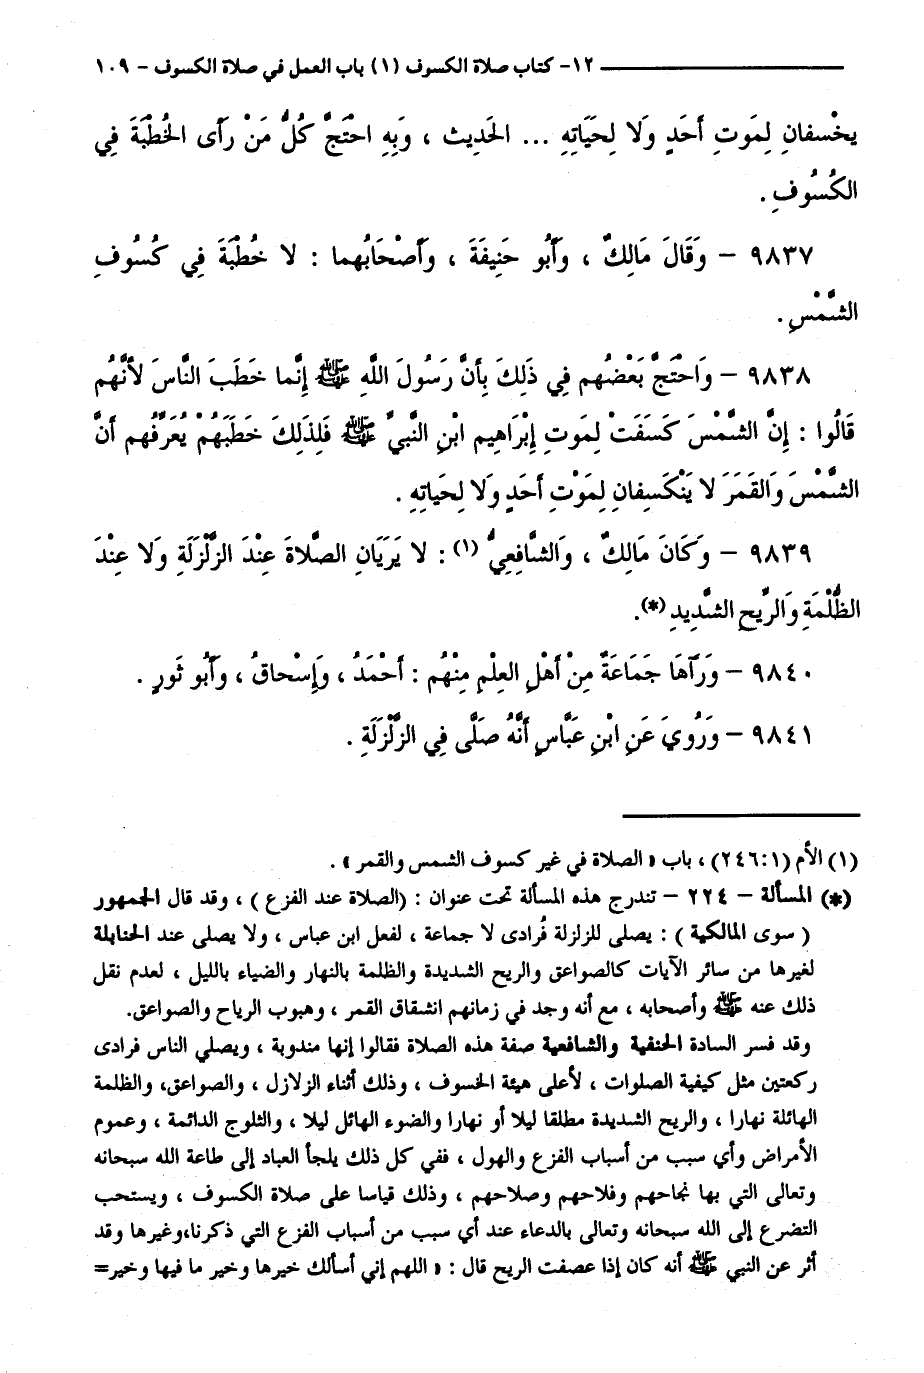 ١٢- كتاب صلاة الكسوف (١) باب العمل في صلاة الكسوف - ١٠٩
يخْسفانِ لِمَوتِ أَحَدٍ وَلا لِحَيَاتِهِ ... الحَدِيث ، وَبِهِ احْتَجَّ كُلُّ مَنْ رَأى الخُطْبَةَ فِي
الكُسُوفِ .
٩٨٣٧ - وَقَالَ مَالِكٌ ، وَأَبُو حَنِيفَةَ ، وَأَصْحَابُهما : لا خُطْبَةَ فِي كُسُوفِ
الشَّمْسِ .
٩٨٣٨ - وَاحْتَجَّ بَعْضُهم فِي ذَلِكَ بِأَنَّ رَسُولَ اللَّهِ ﷺ إِنَّما خَطَبَ النَّاسَ لأَنَّهُم
قَالُوا : إِنَّ الشَّمْسَ كَسَفَتْ لِمَوتِ إِبْرَاهِيم ابْنِ النَّبِيِّ ﷺ فَلِذَلِكَ خَطَبَهُمْ يُعَرِّفُهم أَنَّ
الشَّمْسَ وَالقَمَرَ لا يَنْكَسِفانِ لِمَوْتِ أَحَدٍ وَلا لِحَياتِهِ .
٩٨٣٩ - وَكَانَ مَالِكٌ ، وَالشَّافِعِيُّ (١) : لا يَرَيَانِ الصَّلاةَ عِنْدَ الزَّلْزَلَةِ وَلا عِنْدَ
الظُّلْمَةِ وَالرِّيحِ الشَّدِيدِ (*).
٩٨٤٠ - وَرَآهَا جَمَاعَةٌ مِنْ أَهْلِ العِلْمِ مِنْهُم : أَحْمَدُ ، وَإِسْحاقُ ، وَأَبُو ثَورٍ .
٩٨٤١ - وَرُوِيَ عَنِ ابْنِ عَبَّاسٍ أَنَّهُ صَلَّى فِي الزَّلْزَلَةِ .
(١) الأم (١:٢٤٦) ، باب « الصلاة في غير كسوف الشمس والقمر » .
(*) المسألة - ٢٢٤ - تندرج هذه المسألة تحت عنوان : (الصلاة عند الفزع ) ، وقد قال الجمهور
( سوى المالكية ) : يصلى للزلزلة فُرادى لا جماعة ، لفعل ابن عباس ، ولا يصلى عند الحنابلة
لغيرها من سائر الآيات كالصواعق والريح الشديدة والظلمة بالنهار والضياء بالليل ، لعدم نقل
ذلك عنه ﷺ وأصحابه ، مع أنه وجد في زمانهم انشقاق القمر ، وهبوب الرياح والصواعق.
وقد فسر السادة الحنفية والشافعية صفة هذه الصلاة فقالوا إنها مندوبة ، ويصلي الناس فرادى
ركعتين مثل كيفية الصلوات ، لأعلى هيئة الخسوف ، وذلك أثناء الزلازل ، والصواعق، والظلمة
الهائلة نهارا ، والريح الشديدة مطلقا ليلا أو نهارا والضوء الهائل ليلا ، والثلوج الدائمة ، وعموم
الأمراض وأي سبب من أسباب الفزع والهول ، ففي كل ذلك يلجأ العباد إلى طاعة الله سبحانه
وتعالى التي بها نجاحهم وفلاحهم وصلاحهم ، وذلك قياسا على صلاة الكسوف ، ويستحب
التضرع إلى الله سبحانه وتعالى بالدعاء عند أي سبب من أسباب الفزع التي ذكرنا،وغيرها وقد
أثر عن النبي ﷺ أنه كان إذا عصفت الريح قال : « اللهم إني أسألك خيرها وخير ما فيها وخير=